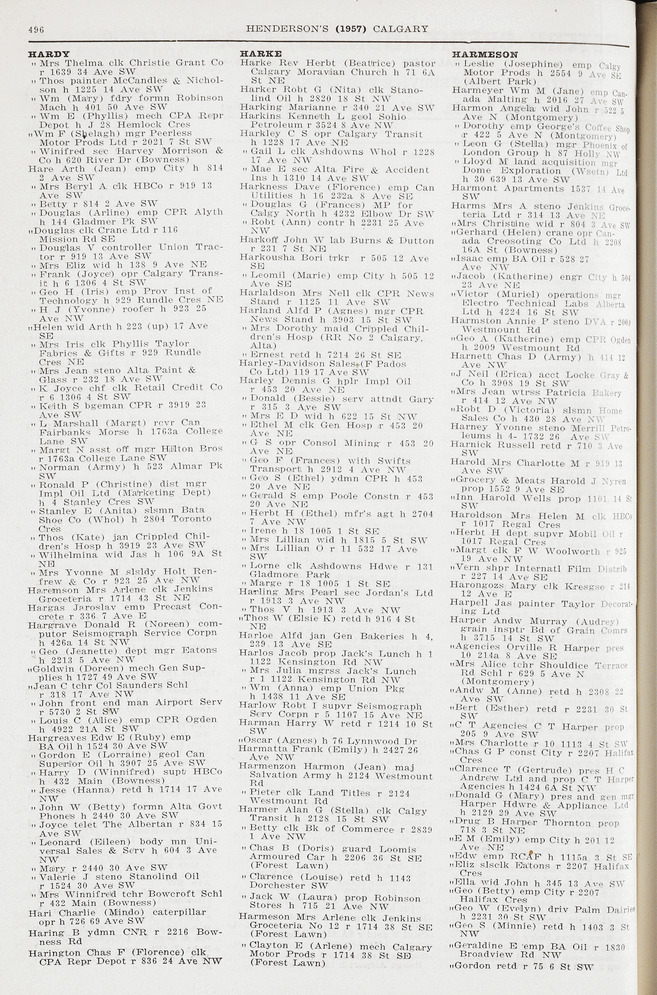 496
HENDERSON'S (1957) CALGARY
HARDY
" Mrs Thelma clk Christie Grant Co
r 1639 34 Ave SW
" Thos painter McCandles & Nichol-
son h 1225 14 Ave SW
" Wm (Mary) fdry formn Robinson
Mach h 401 50 Ave SW
" Wm E (Phyllis) mech CPA Repr
Depot h J 28 Hemlock Cres
"Wm F (Shelagh) mgr Peerless
Motor Prods Ltd r 2021 7 St SW
" Winifred sec Harvey Morrison &
Co h 620 River Dr (Bowness)
Hare Arth (Jean) emp City h 814
2 Ave SW
" Mrs Beryl A clk HBCo r 919 13
Ave SW
" Betty r 814 2 Ave SW
" Douglas (Arline) emp CPR Alyth
h 144 Gladmer Pk SW
"Douglas clk Crane Ltd r 116
Mission Rd SE
" Douglas V controller Union Trac-
tor r 919 13 Ave SW
" Mrs Eliz wid h 138 9 Ave NE
" Frank (Joyce) opr Calgary Trans-
it h 6 1306 4 St SW
" Geo H (Iris) emp Prov Inst of
Technology h 929 Rundle Cres NE
" H J (Yvonne) roofer h 923 25
Ave NW
"Helen wid Arth h 223 (up) 17 Ave
SE
" Mrs Iris clk Phyllis Taylor
Fabrics & Gifts r 929 Rundle
Cres NE
" Mrs Jean steno Alta Paint &
Glass r 232 18 Ave SW
" K Joyce chf clk Retail Credit Co
r 6 1306 4 St SW
" Keith S bgeman CPR r 3919 23
Ave SW
" L Marshall (Margt) rcvr Can
Fairbanks Morse h 1763a College
Lane SW
" Margt N asst off mgr Hilton Bros
r 1763a College Lane SW
" Norman (Army) h 523 Almar Pk
SW
" Ronald P (Christine) dist mgr
Impl Oil Ltd (Marketing Dept)
h 4 Stanley Cres SW
" Stanley E (Anita) slsmn Bata
Shoe Co (Whol) h 2804 Toronto
Cres
" Thos (Kate) jan Crippled Chil-
dren's Hosp h 3919 23 Ave SW
" Wilhelmina wid Jas h 106 9A St
NE
" Mrs Yvonne M slsldy Holt Ren-
frew & Co r 923 25 Ave NW
Haremson Mrs Arlene clk Jenkins
Groceteria r 1714 43 St NE
Hargas Jaroslav emp Precast Con-
crete r 336 7 Ave E
Hargrave Donald R (Noreen) com-
putor Seismograph Service Corpn
h 426a 14 St NW
" Geo (Jeanette) dept mgr Eatons
h 2213 5 Ave NW
"Goldwin (Doreen) mech Gen Sup-
plies h 1727 49 Ave SW
"Jean C tchr Col Saunders Schl
r 318 17 Ave NW
" John front end man Airport Serv
r 5730 2 St SW
" Louis C (Alice) emp CPR Ogden
h 4922 21A St SW
Hargreaves Edw E (Ruby) emp
BA Oil h 1524 30 Ave SW
" Gordon E (Lorraine) geol Can
Superior Oil h 3907 25 Ave SW
" Harry D (Winnifred) supt HBCo
h 432 Main (Bowness)
" Jesse (Hanna) retd h 1714 17 Ave
NW
" John W (Betty) formn Alta Govt
Phones h 2440 30 Ave SW
" Joyce telet The Albertan r 834 15
Ave SW
" Leonard (Eileen) body mn Uni-
versal Sales & Serv h 604 3 Ave
NW
" Mary r 2440 30 Ave SW
" Valerie J steno Stanolind Oil
r 1524 30 Ave SW
" Mrs Winnifred tchr Bowcroft Schl
r 432 Main (Bowness)
Hari Charlie (Mindo) caterpillar
opr h 726 69 Ave SW
Haring B ydmn CNR r 2216 Bow-
ness Rd
Harington Chas F (Florence) clk
CPA Repr Depot r 836 24 Ave NW
HARKE
Harke Rev Herbt (Beatrice) pastor
Calgary Moravian Church h 71 6A
St NE
Harker Robt G (Nita) clk Stano-
lind Oil h 2820 18 St NW
Harking Marianne r 340 21 Ave SW
Harkins Kenneth L geol Sohio
Petroleum r 3524 8 Ave NW
Harkley C S opr Calgary Transit
h 1228 17 Ave NE
" Gail L clk Ashdowns Whol r 1228
17 Ave NW
" Mae E sec Alta Fire & Accident
Ins h 1310 14 Ave SW
Harkness Dave (Florence) emp Can
Utilities h 16 232a 8 Ave SE
" Douglas G (Frances) MP for
Calgy North h 4232 Elbow Dr SW
" Robt (Ann) contr h 2231 25 Ave
NW
Harkoff John W lab Burns & Dutton
r 231 7 St NE
Harkousha Bori trkr r 505 12 Ave
SE
" Leomil (Marie) emp City h 505 12
Ave SE
Harlaldson Mrs Nell clk CPR News
Stand r 1125 11 Ave SW
Harland Alfd P (Agnes) mgr CPR
News Stand h 3903 15 St SW
" Mrs Dorothy maid Crippled Chil-
dren's Hosp (RR No 2 Calgary,
Alta)
" Ernest retd h 7214 26 St SE
Harley-Davidson Sales (F Pados
Co Ltd) 119 17 Ave SW
Harley Dennis G hplr Impl Oil
r 453 20 Ave NE
" Donald (Bessie) serv attndt Gary
r 315 3 Ave SW
" Mrs E D wid h 622 15 St NW
" Ethel M clk Gen Hosp r 453 20
Ave NE
" G S opr Consol Mining r 453 20
Ave NE
" Geo F (Frances) with Swifts
Transport h 2912 4 Ave NW
" Geo S (Ethel) ydmn CPR h 453
20 Ave NE
" Gerald S emp Poole Constn r 453
20 Ave NE
" Herbt H (Ethel) mfr's agt h 2704
7 Ave NW
" Irene h 18 1005 1 St SE
" Mrs Lillian wid h 1815 5 St SW
" Mrs Lillian O r 11 532 17 Ave
SW
" Lorne clk Ashdowns Hdwe r 131
Gladmore Park
" Marge r 18 1005 1 St SE
Harling Mrs Pearl sec Jordan's Ltd
r 1913 3 Ave NW
" Thos V h 1913 3 Ave NW
"Thos W (Elsie K) retd h 916 4 St
NE
Harloe Alfd jan Gen Bakeries h 4,
239 13 Ave SE
Harlos Jacob prop Jack's Lunch h 1
1122 Kensington Rd NW
" Mrs Julia mgrss Jack's Lunch
r 1 1122 Kensington Rd NW
" Wm (Anna) emp Union Pkg
h 1438 11 Ave SE
Harlow Robt I supvr Seismograph
Serv Corpn r 5 1107 15 Ave NE
Harman Harry W retd r 1214 10 St
SW
"Oscar (Agnes) h 76 Lynnwood Dr
Harmatta Frank (Emily) h 2427 26
Ave NW
Harmenson Harmon (Jean) maj
Salvation Army h 2124 Westmount
Rd
" Pieter clk Land Titles r 2124
Westmount Rd
Harmer Alan G (Stella) clk Calgy
Transit h 2128 15 St SW
" Betty clk Bk of Commerce r 2839
1 Ave NW
" Chas B (Doris) guard Loomis
Armoured Car h 2206 36 St SE
(Forest Lawn)
" Clarence (Louise) retd h 1143
Dorchester SW
" Jack W (Laura) prop Robinson
Stores h 715 21 Ave NW
Harmeson Mrs Arlene clk Jenkins
Groceteria No 12 r 1714 38 St SE
(Forest Lawn)
" Clayton E (Arlene) mech Calgary
Motor Prods r 1714 38 St SE
(Forest Lawn)
HARMESON
" Leslie (Josephine) emp Calgy
Motor Prods h 2554 9 Ave SE
(Albert Park)
Harmeyer Wm M (Jane) emp Can-
ada Malting h 2016 27 Ave SW
Harmon Angela wid John r 522 5
Ave N (Montgomery)
" Dorothy emp George's Coffee Shop
r 422 5 Ave N (Montgomery)
" Leon G (Stella) mgr Phoenix of
London Group h 87 Holly NW
" Lloyd M land acquisition mgr
Dome Exploration (Westn) Ltd
h 30 639 13 Ave SW
Harmont Apartments 1537 14 Ave
SW
Harms Mrs A steno Jenkins Groce-
teria Ltd r 314 13 Ave NE
"Mrs Christine wid r 804 3 Ave SW
"Gerhard (Helen) crane opr Can-
ada Creosoting Co Ltd h 2208
16A St (Bowness)
"Isaac emp BA Oil r 528 27
Ave NW
"Jacob (Katherine) engr City h 504
23 Ave NE
"Victor (Muriel) operations mgr
Electro Technical Labs Alberta
Ltd h 4224 16 St SW
Harmston Annie P steno DVA r 2009
Westmount Rd
"Geo A (Katherine) emp CPR Ogden
h 2009 Westmount Rd
Harnett Chas D (Army) h 414 12
Ave NW
"J Neil (Erica) acct Locke Gray &
Co h 3908 19 St SW
"Mrs Jean wtrss Patricia Bakery
r 414 12 Ave NW
"Robt D (Victoria) slsmn Home
Sales Co h 430 28 Ave NW
Harney Yvonne steno Merrill Petro-
leums h 4- 1732 26 Ave SW
Harnick Russell retd r 710 3 Ave
SW
Harold Mrs Charlotte M r 919 13
Ave SW
"Grocery & Meats Harold J Nyren
prop 1552 9 Ave SE
"Inn Harold Wells prop 1101 14 St
SW
Haroldson Mrs Helen M clk HBCo
r 1017 Regal Cres
"Herbt H dept supvr Mobil Oil r
1017 Regal Cres
"Margt clk F W Woolworth r 925
19 Ave NW
"Vern shpr Internatl Film Distrib
r 227 14 Ave SE
Harongozs Mary clk Kresgse r 214
12 Ave E
Harpell Jas painter Taylor Decorat-
ing Ltd
Harper Andw Murray (Audrey)
grain insptr Bd of Grain Comrs
h 3715 14 St SW
"Agencies Orville R Harper pres
10 214a 8 Ave SE
"Mrs Alice tchr Shouldice Terrace
Rd Schl r 629 5 Ave N
(Montgomery)
"Andw M (Anne) retd h 2308 22
Ave SW
"Bert (Esther) retd r 2231 30 St
SW
"C T Agencies C T Harper prop
205 9 Ave SW
"Mrs Charlotte r 10 1113 4 St SW
"Chas G P const City r 2207 Halifax
Cres
"Clarence T (Gertrude) pres H C
Andrew Ltd and prop C T Harper
Agencies h 1424 6A St NW
"Donald G (Mary) pres and gen mgr
Harper Hdwre & Appliance Ltd
h 2129 29 Ave SW
"Drug B Harper Thornton prop
718 3 St NE
"E M (Emily) emp City h 201 12
Ave NE
"Edw emp RCAF h 1115a 3 St SE
"Eliz slsclk Eatons r 2207 Halifax
Cres
"Ella wid John h 345 13 Ave SW
"Geo (Betty) emp City r 2207
Halifax Cres
"Geo W (Evelyn) driv Palm Dairies
h 2231 30 St SW
"Geo S (Minnie) retd h 1403 3 St
NW
"Geraldine E emp BA Oil r 1830
Broadview Rd NW
"Gordon retd r 75 6 St SW